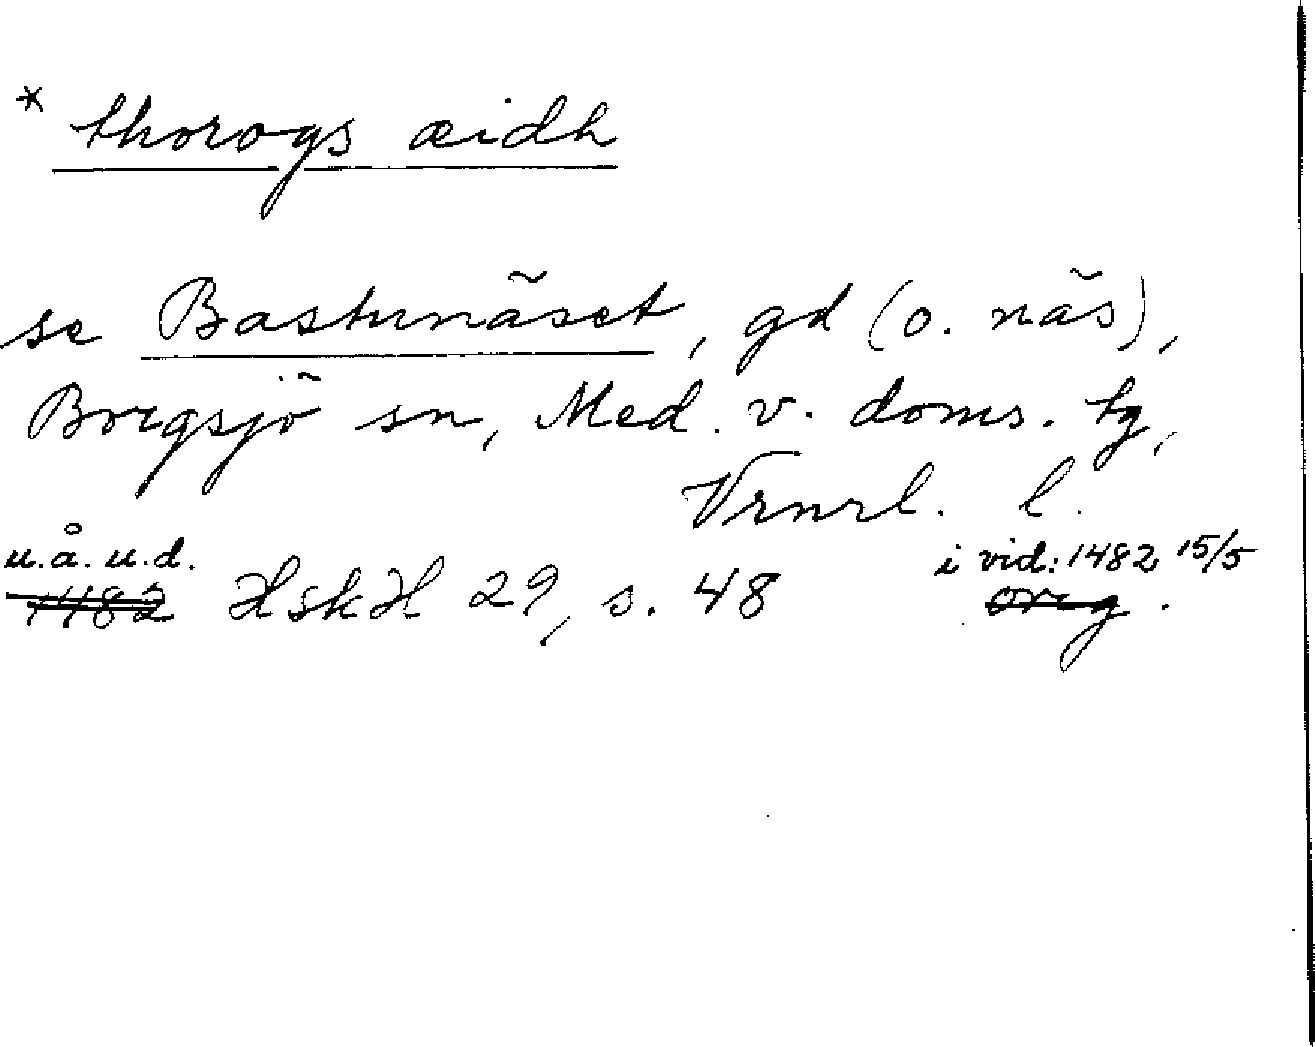 * thorogs æidh
se Bastunäset, gd (o. näs),
Borgsjö sn, Med. v. doms. tg,
Vrnrl. l.
u.å. u.d. i vid: 1482 15/5
1482 HskH 29, s. 48 orig.